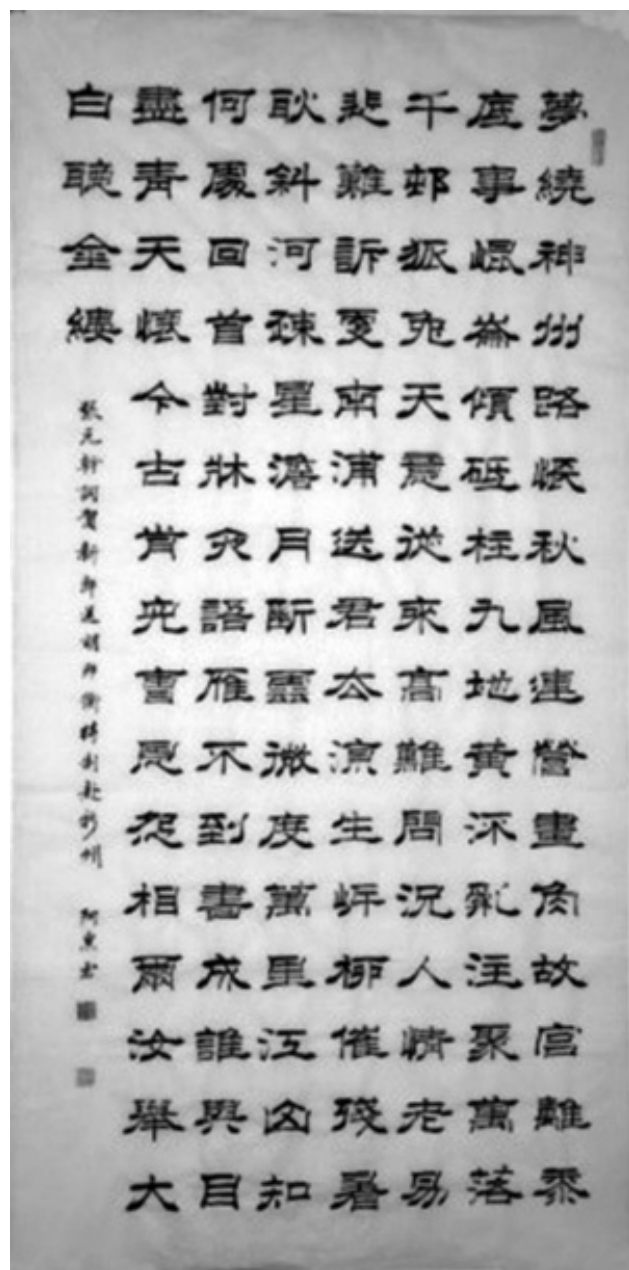 夢繞神州路悵秋風連營畫角故宮離黍
底事崐崙傾砥柱九地黃流亂注聚萬落
千邨狐兔天意從來高難問況人情老易
悲難訴更南浦送君去涼生岸柳催殘暑
耿斜河疎星澹月斷雲微度萬里江山知
何處回首對牀夜語雁不到書成誰與目
盡青天懷今古肯兒曹恩怨相爾汝舉大
白聽金縷
張元幹詞賀新郎送胡邦衡待制赴新州 阿書